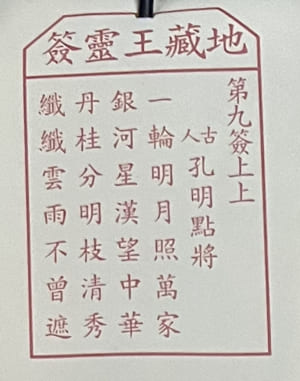 地藏王靈簽
第九簽上上
古人孔明點將
一輪明月照萬家
銀河星漢望中華
丹桂分明枝清秀
纖纖雲雨不曾遮